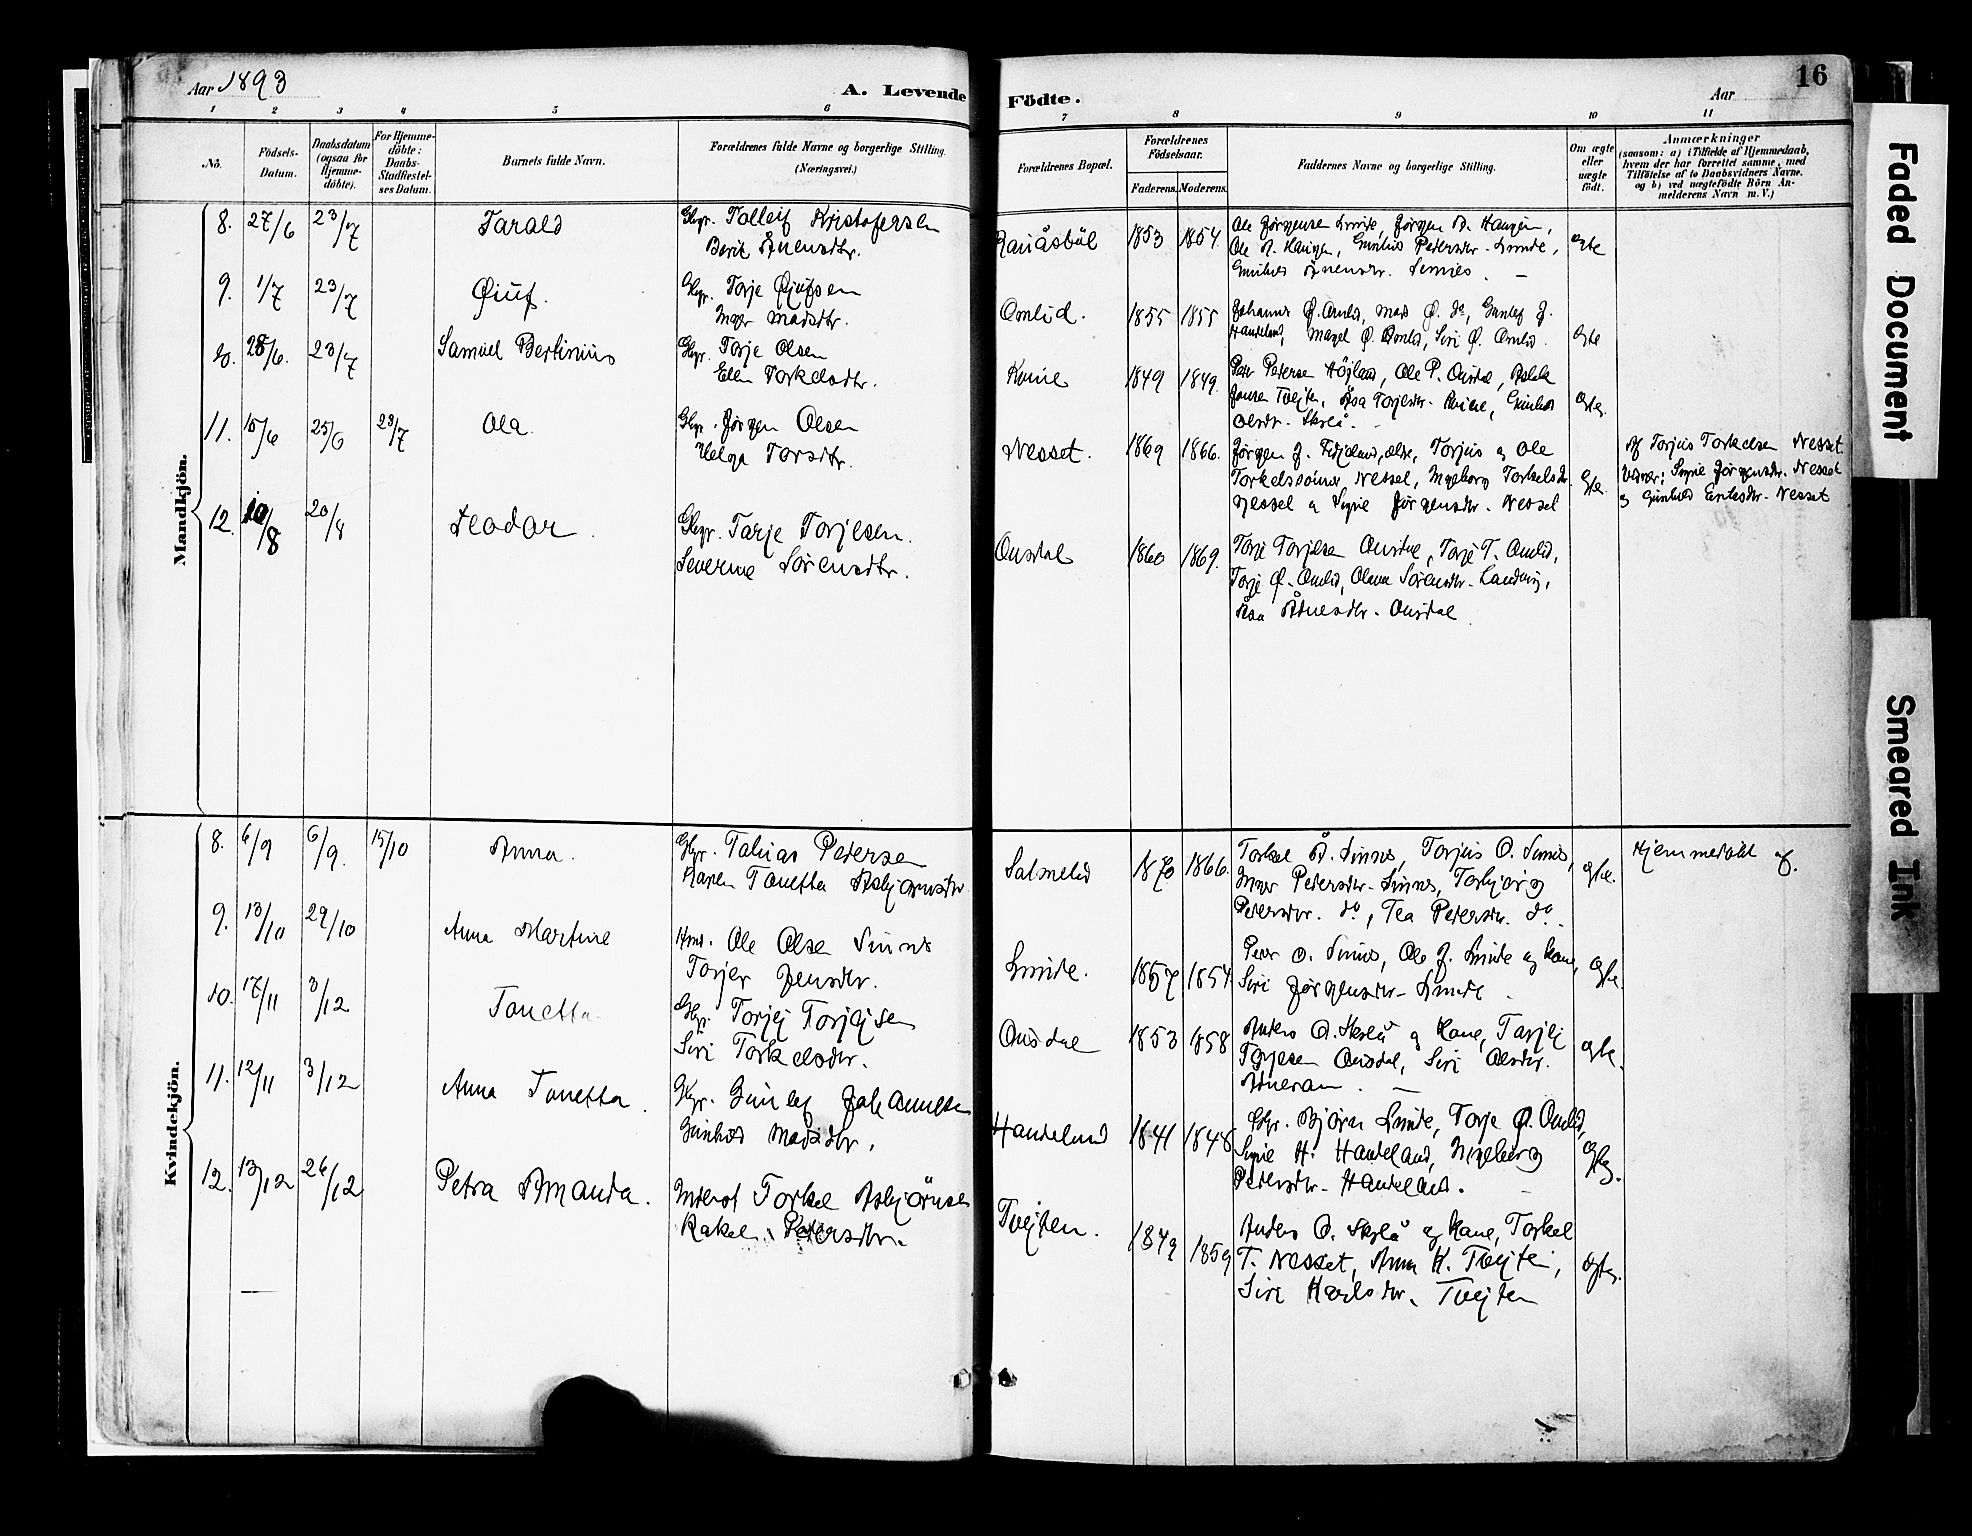 Aar 1893
A. Levende Födte.
Aar
16
1 2 3 4 5 6 7 8 9 10 11
No.
Födsels-Datum.
Daabsdatum (ogsaa for Hjemme-döbte).
For Hjemme-döbte: Daabs-Stadfæstel-ses Datum.
Barnets fulde Navn.
Forældrenes fulde Navne og borgerlige Stilling.
(Næringsvei.)
Forældrenes Bopæl.
Forældrenes Födselsaar.
Faderens. Moderens.
Faddernes Navne og borgerlige Stilling.
Om ægte eller uægte født.
Anmærkninger
(saasom: a) i Tilfælde af Hjemmedaab,
hvem der har forrettet samme, med
Tilföielse af to Daabsvidners Navne.
og b) ved uægtefödte Börn An-
melderens Navn m. V.)
Mandkjön.
8. 27/6 23/7 Tarald Gbr. Tolleif Kristofersen
Berit Ånensdtr.
1853 1854 Ole Jørgensen Lunde, Jørgen A. Haugen,
Ole A. Haugen, Gunhild Pedersdtr. Lunde,
Gunhild Ånensdtr. Sinnes. ægte
9. 1/7 23/7 Øiuf. Gbr. Torje Øjufsen
Inger Madsdtr.
Omlid. 1855 1855 Johannes Ø. Omlid, Mads Ø. do, Gunlef J.
Handeland, Magel Ø. Omlid, Siri Ø. Omlid. ægte
10. 28/6. 23/7 Samuel Bertinius Gbr. Torje Olsen
Ellen Torkelsdtr.
1849 1849. Peder Pedersen Högland, Ole P. Ousdal, Aslak
Jonsen Tvejten, Åsa Torjesdtr. Gunhild
Olsdtr. Skreå. ægte.
11. 15/6 25/6 23/7 Ola. Gbr. Jørgen Olsen
Helga Torsdtr.
Nesset. 1869 1866. Jørgen J. Torjus og Ole
Torkelssönner Nesset, Ingeborg Torkelsdtr.
Nesset og Signe Jørgensdtr. Nesset ægte.
Af Torjus Torkelsen Nesset.
Vidner: Signe Jørgensdtr. Nesset
og Gunhild Eriksdtr. Nesset
12. 10/8 20/8 Teodor. Gbr. Tarje Torjesen.
Severine Sörensdtr.
Ousdal 1860 1869. Torje Torjesen Ousdal, Torje T. Omlid,
Torje Ø. Omlid, Olava Sörensdtr.
Åsa Ådnesdtr. Ousdal
Kvindekjön.
8. 6/9 6/9. 15/10 Anna. Gbr. Tobias Pedersen
Karen Tonetta Asbjörnsdtr.
Salmelid 1870 1866. Torkel Å. Sinnes, Torjus O. Sinnes,
Inger Pedersdtr. Sinnes, Torbjørg
Pedersdtr. do, Tea Pedersdtr. do. ægte.
Hjemmedöbt af.
9. 13/10 29/10 Anna Martine Hmd. Ole Olsen Sinnes
Torjer Jensdtr.
Lunde. 1857 1854 Peder O. Sinnes, Ole J. Lunde og Kone,
Siri Jørgensdtr. Lunde ægte.
10. 17/11 3/12 Tonetta. Gbr. Torjej Torjejsen
Siri Torkelsdtr.
Ousdal 1853 1858 Anders O. Skreå og Kone, Tarjej
Torjesen Ousdal, Siri Olsdtr.
Ådneram. ægte.
11. 12/11 3/12 Anna Tonetta. Gbr. Gunlef Johannesen
Gunhild Madsdtr.
Handeland 1841 1848 Gbr. Bjørn Lunde, Torje Ø. Omlid,
Signe H. Handeland, Ingeborg
Pedersdtr. Handeland. ægte.
12. 13/12 26/12 Petra Amanda. Inderst Torkel Asbjörnsen
Rakel Pedersdtr.
Tvejten. 1849 1859 Anders O. Skreå og Kone, Torkel
T. Nesset, Anna K. Tvejten,
Siri Tvejten ægte.
Faded Document
Smeared Ink